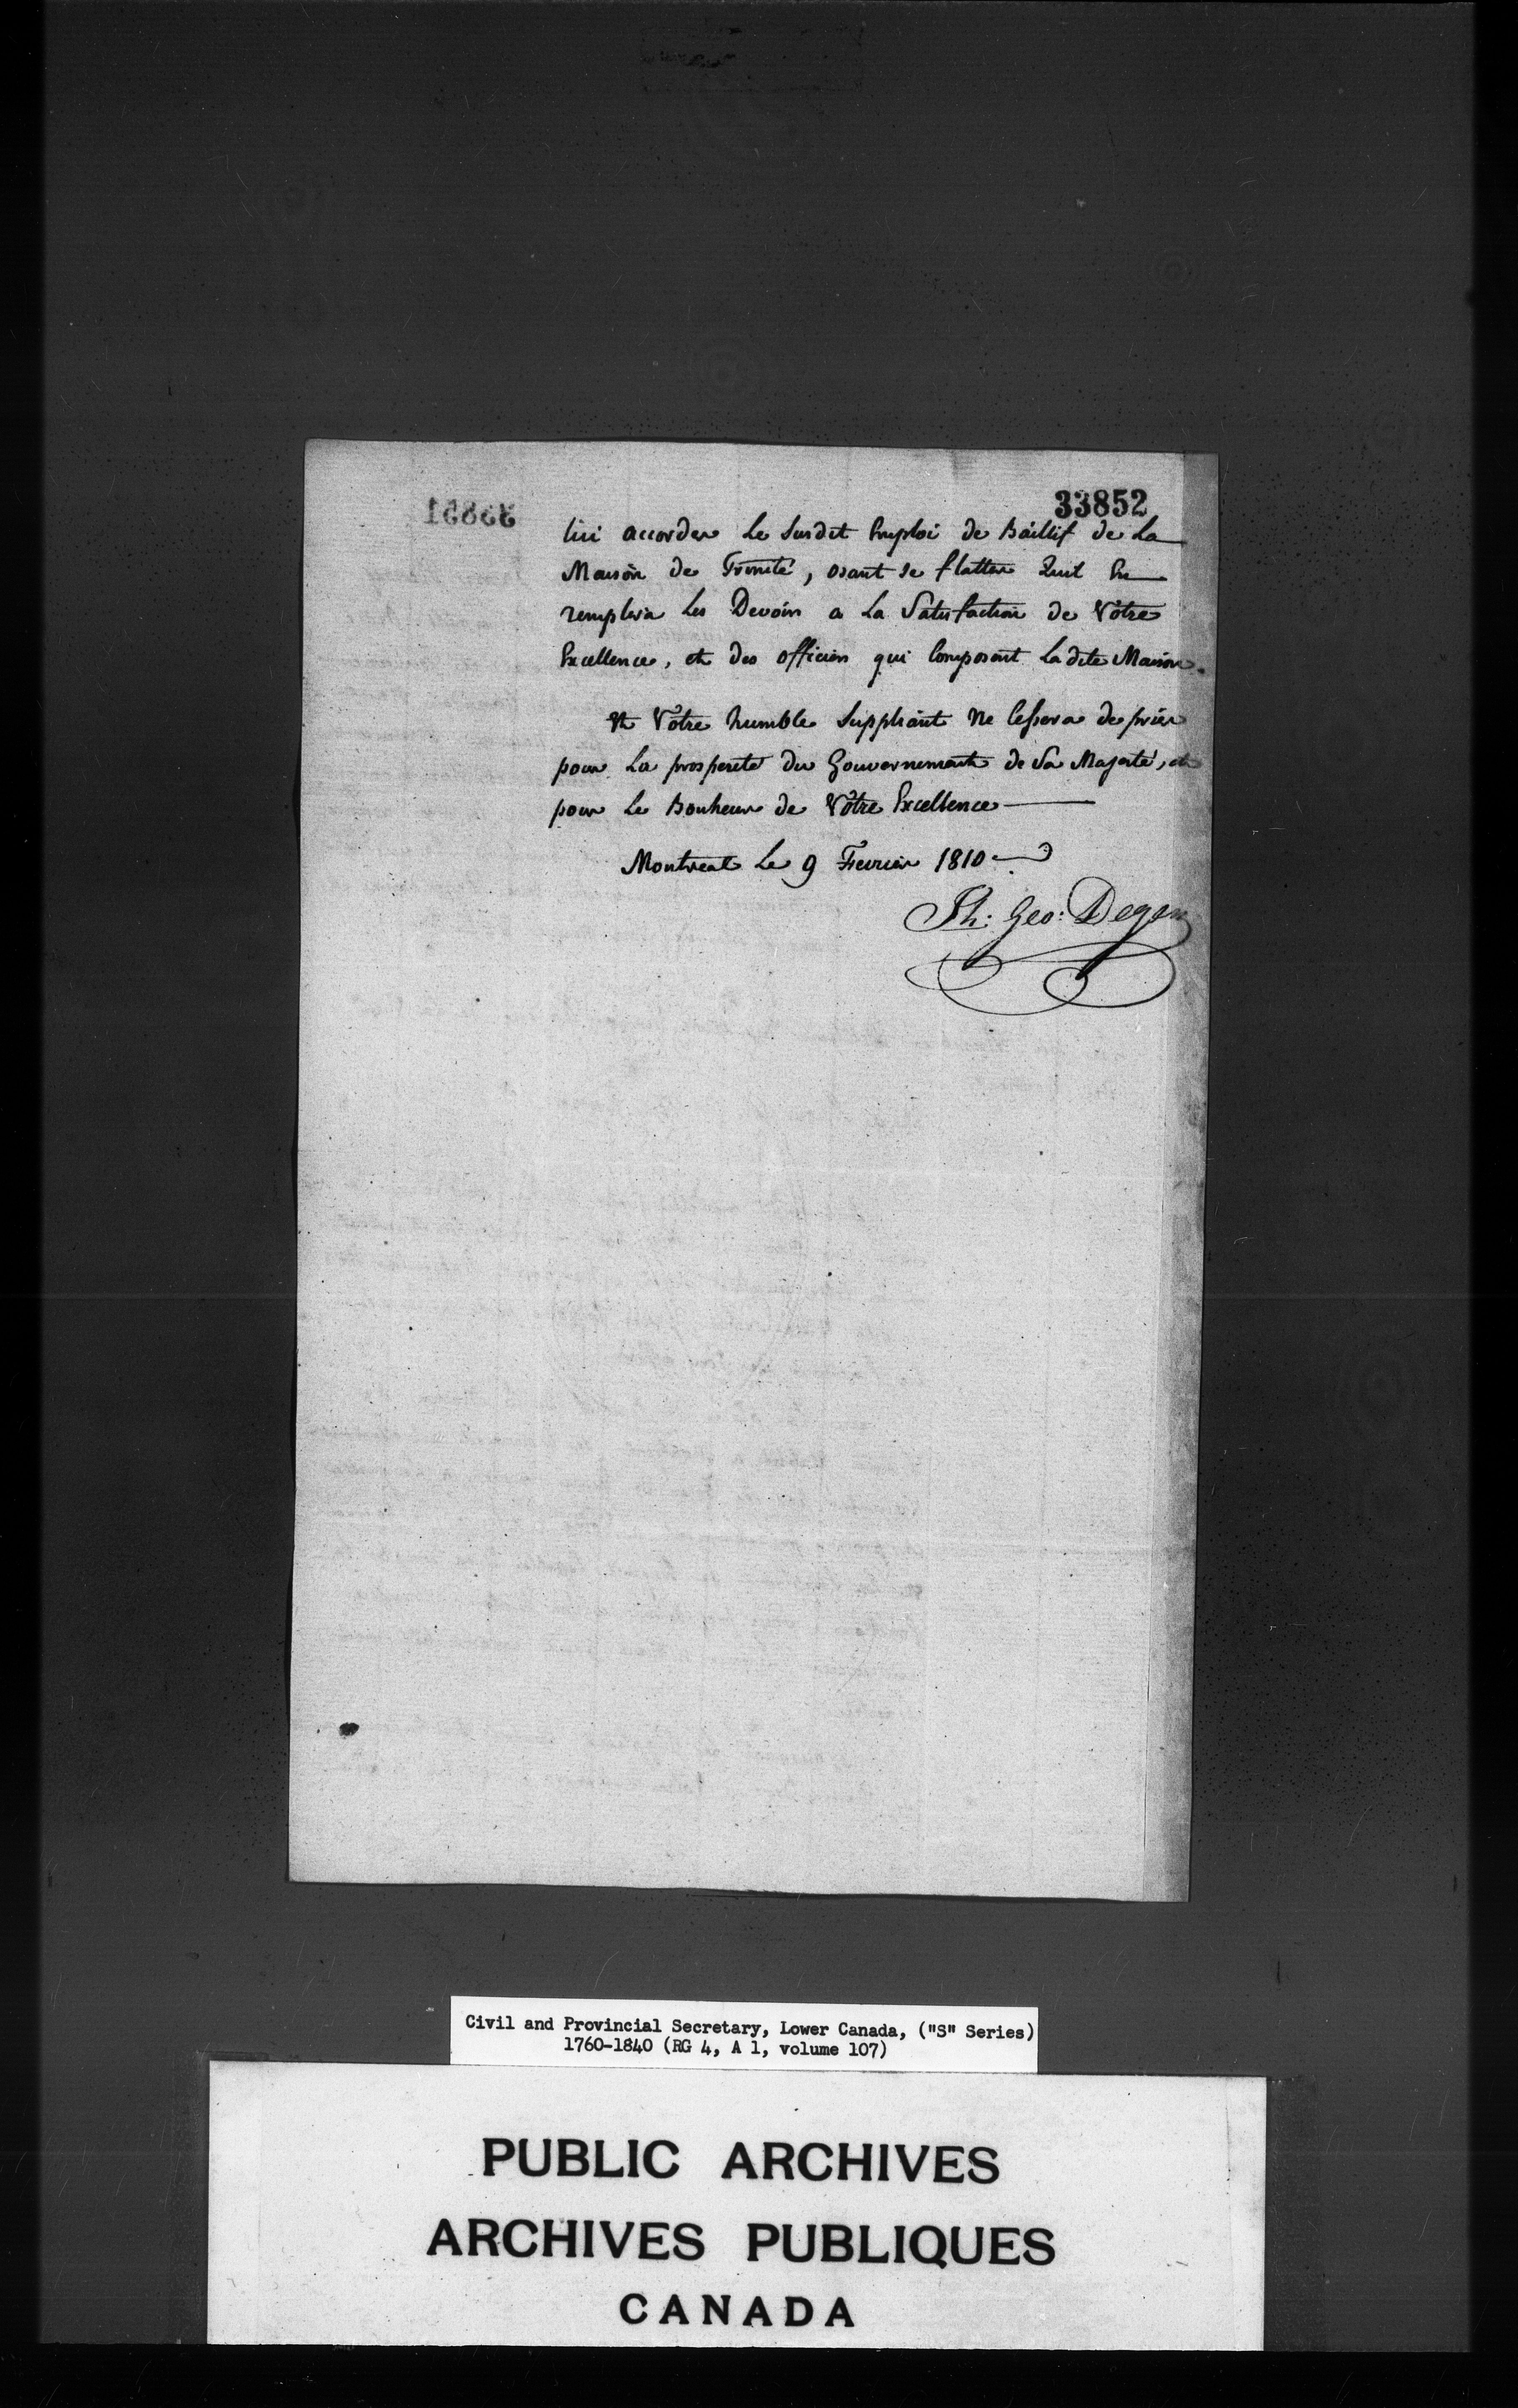 33851
33852
lui accorder Le Susdit Emploi de Baillif de La
Maison de Trinité, osant se flatter Quil En
remplira Les Devoirs a La Satisfaction de Vôtre
Excellence, et des officiers qui Composent Ladite Maison.
Et Vôtre humble Suppliant Ne Cessera de prier
pour La prosperité du Gouvernement de Sa Majesté, et
pour Le Bonheur de Vôtre Excellence
Montreal Le 9 Fevrier 1810
Ph: Geo: Degen
Civil and Provincial Secretary, Lower Canada, ("S" Series)
1760-1840 (RG 4, A 1, volume 107)
PUBLIC ARCHIVES
ARCHIVES PUBLIQUES
CANADA